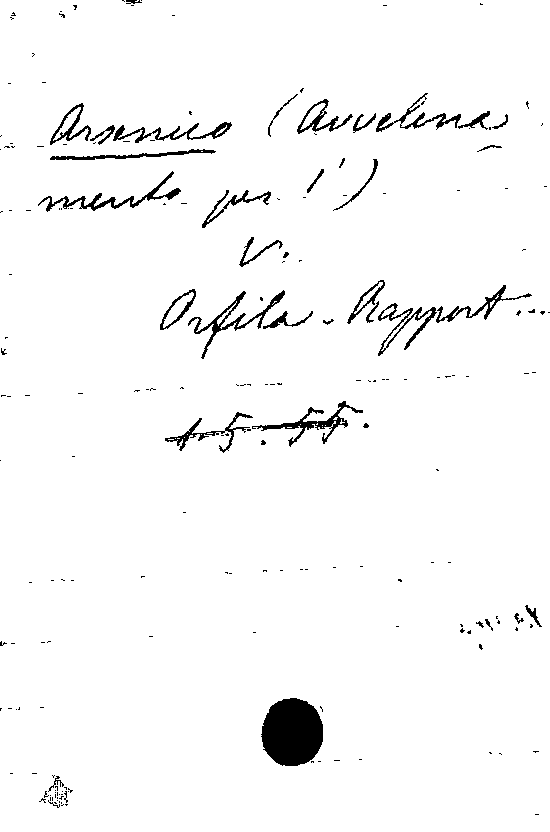 Arsenico (Avvelena-
mento per l')
V.
Orfila - Rapport...
15.55.